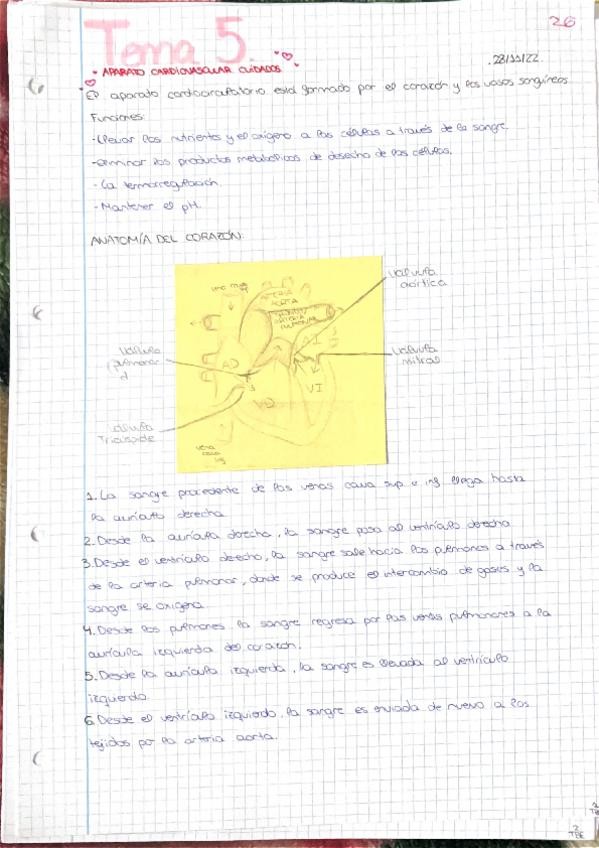 26
Tema 5.
28/11/22.
• APARATO CARDIOVASCULAR CUIDADOS •
El aparato cardiocirculatorio está formado por el corazón y los vasos sanguíneos.
Funciones:
-Llevar los nutrientes y el oxígeno a las células a través de la sangre.
-eliminar los productos metabólicos de desecho de las células.
-La termorregulación.
-Mantener el pH.
ANATOMÍA DEL CORAZÓN:
válvula
aórtica
ARTERIA
AORTA
ARTERIA
PULMONAR
válvula
pulmonar
válvula
mitral
AD
AI
VI
VD
válvula
Tricúspide
vena
cava
inf
1. La sangre procedente de las venas cava sup e inf llega hasta
la aurícula derecha
2. Desde la aurícula derecha, la sangre pasa al ventrículo derecho
3. Desde el ventrículo derecho, la sangre sale hacia los pulmones a través
de la arteria pulmonar, donde se produce el intercambio de gases y la
sangre se oxigena
4. Desde los pulmones la sangre regresa por las venas pulmonares a la
aurícula izquierda del corazón.
5. Desde la aurícula izquierda, la sangre es llevada al ventrículo
izquierdo.
6. Desde el ventrículo izquierdo, la sangre es enviada de nuevo a los
tejidos por la arteria aorta.